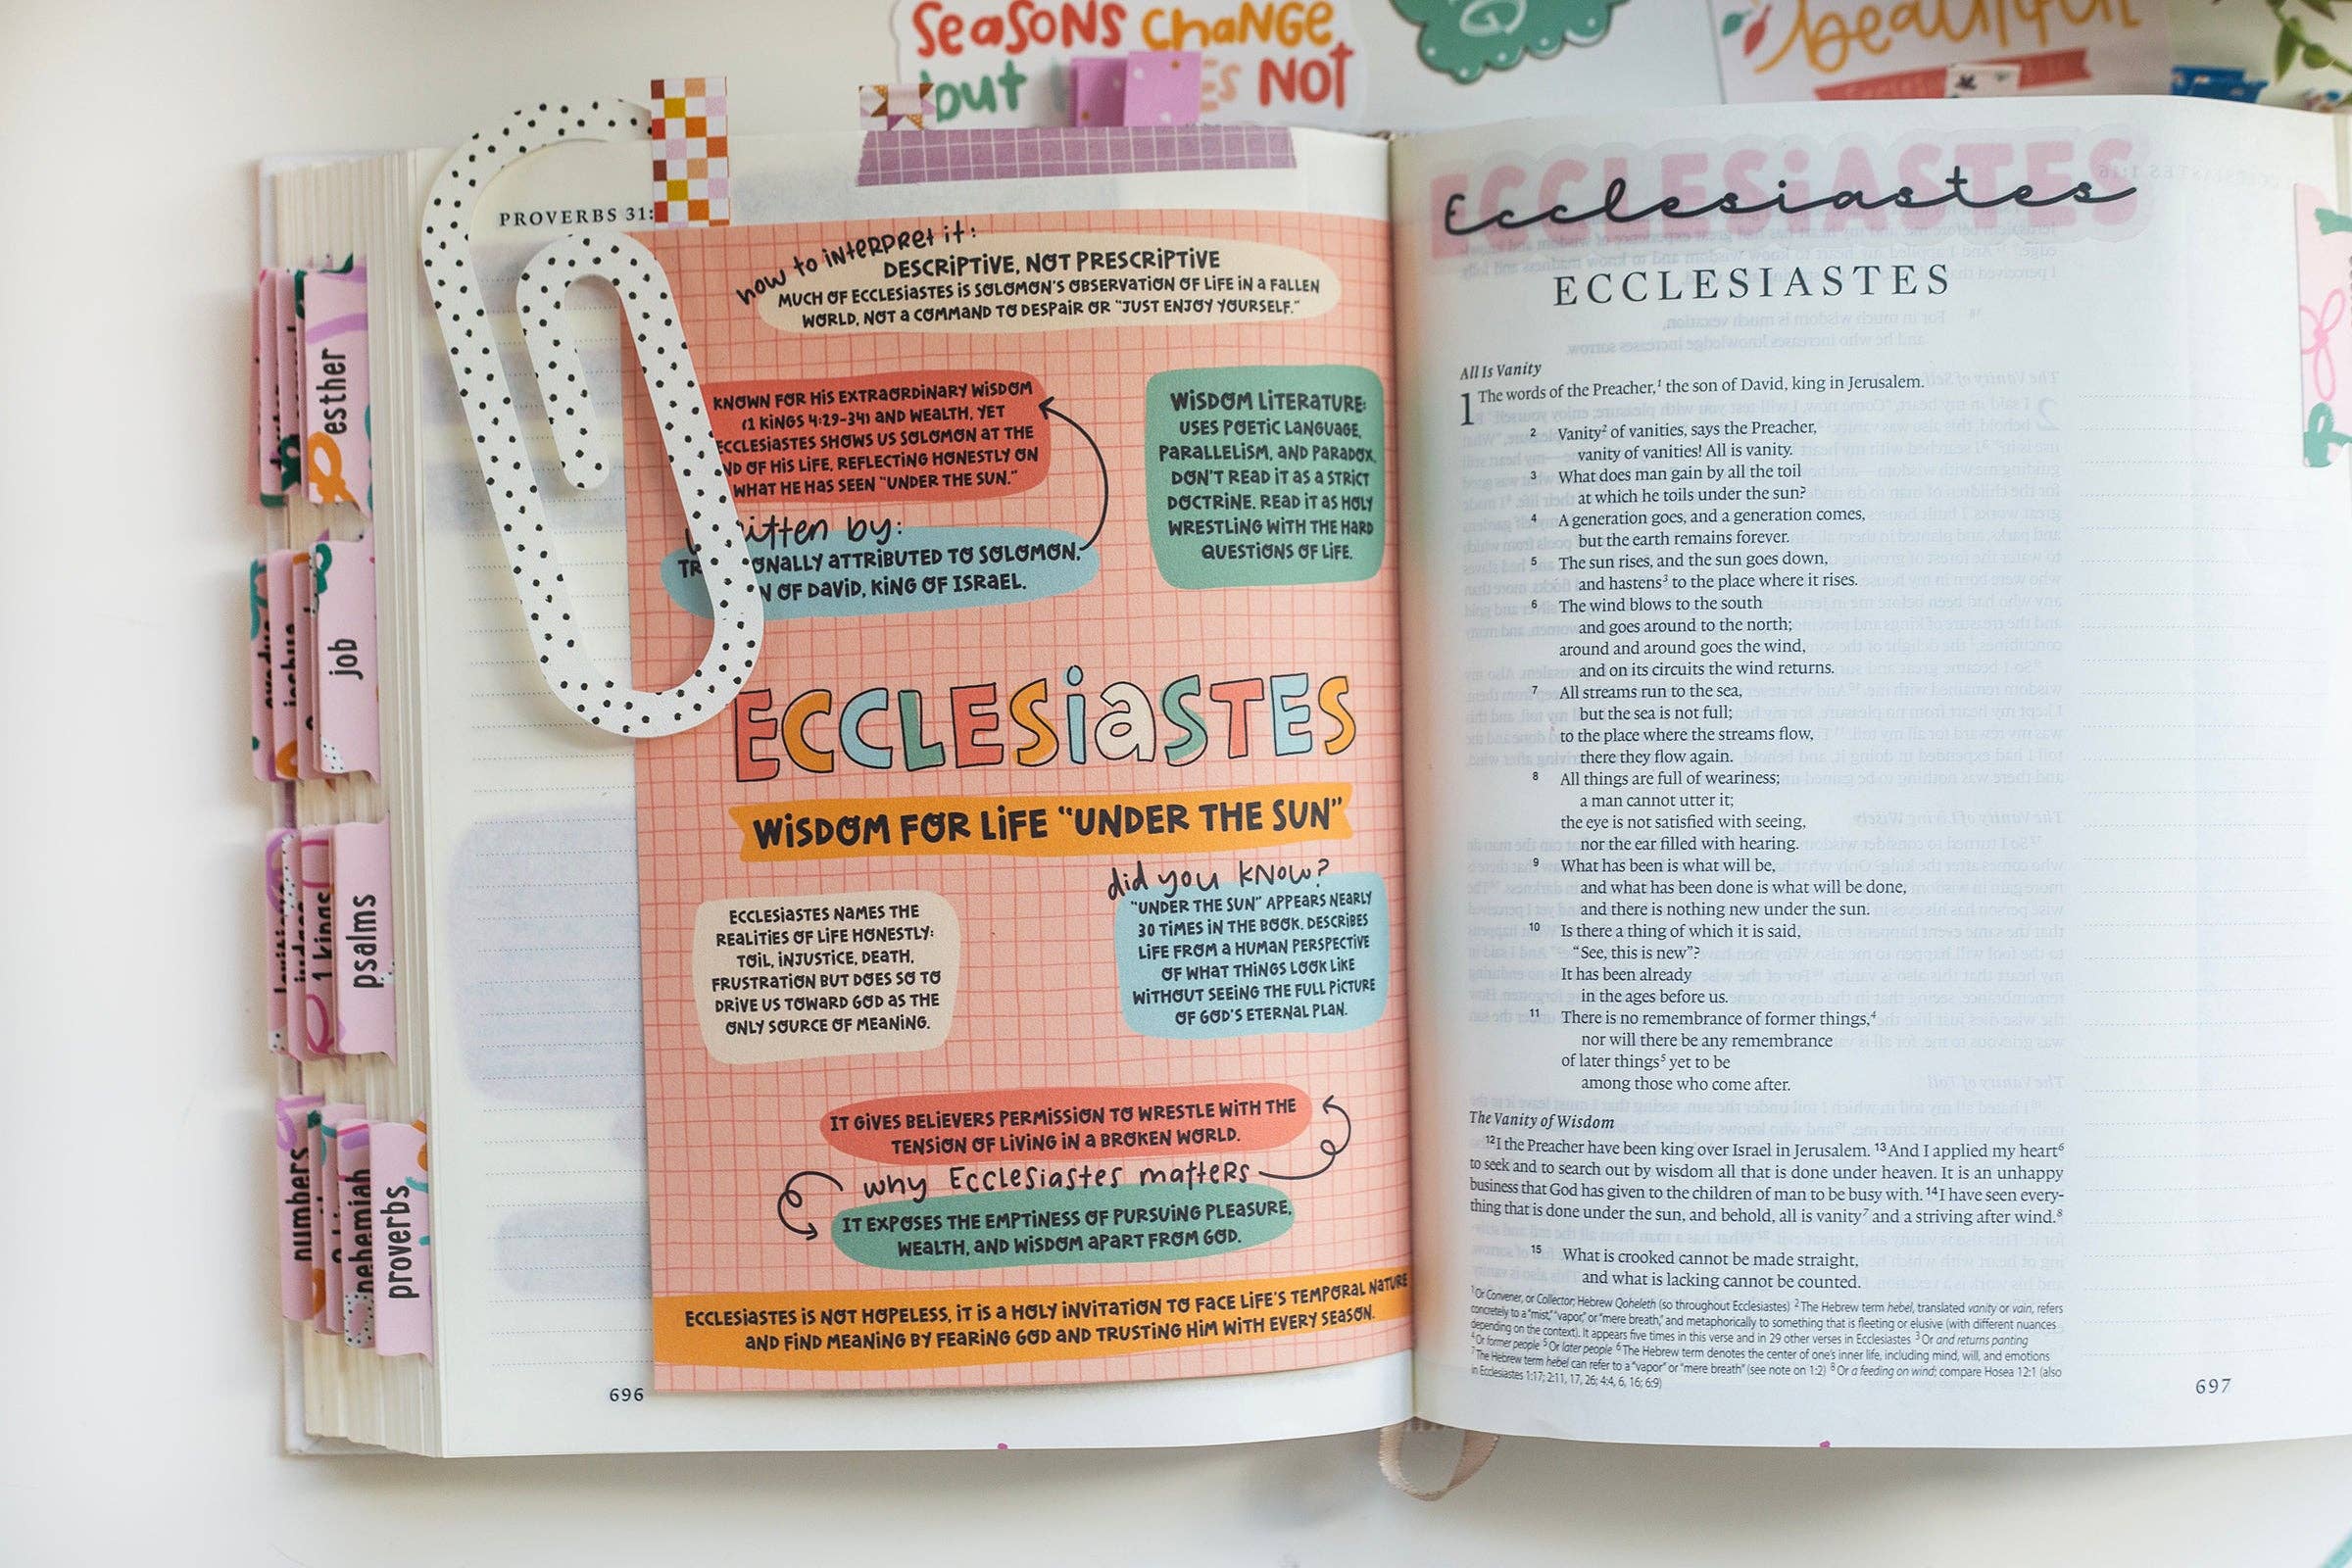 SEASONS CHANGE
but NOT
beautiful
PROVERBS 31:
how to interpret it:
DESCRIPTIVE, NOT PRESCRIPTIVE
MUCH OF ECCLESIASTES IS SOLOMON'S OBSERVATION OF LIFE IN A FALLEN
WORLD, NOT A COMMAND TO DESPAIR OR "JUST ENJOY YOURSELF."
KNOWN FOR HIS EXTRAORDINARY WISDOM
(1 KINGS 4:29-34) AND WEALTH, YET
ECCLESIASTES SHOWS US SOLOMON AT THE
END OF HIS LIFE, REFLECTING HONESTLY ON
WHAT HE HAS SEEN "UNDER THE SUN."
WISDOM LITERATURE:
USES POETIC LANGUAGE,
PARALLELISM, AND PARADOX.
DON'T READ IT AS A STRICT
DOCTRINE. READ IT AS HOLY
WRESTLING WITH THE HARD
QUESTIONS OF LIFE.
written by:
TRADITIONALLY ATTRIBUTED TO SOLOMON.
OF DAVID, KING OF ISRAEL.
ECCLESIASTES
WISDOM FOR LIFE "UNDER THE SUN"
ECCLESIASTES NAMES THE
REALITIES OF LIFE HONESTLY:
TOIL, INJUSTICE, DEATH,
FRUSTRATION BUT DOES SO TO
DRIVE US TOWARD GOD AS THE
ONLY SOURCE OF MEANING.
did you know?
"UNDER THE SUN" APPEARS NEARLY
30 TIMES IN THE BOOK. DESCRIBES
LIFE FROM A HUMAN PERSPECTIVE
OF WHAT THINGS LOOK LIKE
WITHOUT SEEING THE FULL PICTURE
OF GOD'S ETERNAL PLAN.
IT GIVES BELIEVERS PERMISSION TO WRESTLE WITH THE
TENSION OF LIVING IN A BROKEN WORLD.
why Ecclesiastes matters
IT EXPOSES THE EMPTINESS OF PURSUING PLEASURE,
WEALTH, AND WISDOM APART FROM GOD.
ECCLESIASTES IS NOT HOPELESS, IT IS A HOLY INVITATION TO FACE LIFE'S TEMPORAL NATURE
AND FIND MEANING BY FEARING GOD AND TRUSTING HIM WITH EVERY SEASON.
696
esther
job
psalms
1 kings
numbers
nehemiah
proverbs
Ecclesiastes
ECCLESIASTES
ECCLESIASTES
All Is Vanity
1 The words of the Preacher,1 the son of David, king in Jerusalem.
2 Vanity2 of vanities, says the Preacher,
vanity of vanities! All is vanity.
3 What does man gain by all the toil
at which he toils under the sun?
4 A generation goes, and a generation comes,
but the earth remains forever.
5 The sun rises, and the sun goes down,
and hastens3 to the place where it rises.
6 The wind blows to the south
and goes around to the north;
around and around goes the wind,
and on its circuits the wind returns.
7 All streams run to the sea,
but the sea is not full;
to the place where the streams flow,
there they flow again.
8 All things are full of weariness;
a man cannot utter it;
the eye is not satisfied with seeing,
nor the ear filled with hearing.
9 What has been is what will be,
and what has been done is what will be done,
and there is nothing new under the sun.
10 Is there a thing of which it is said,
"See, this is new"?
It has been already
in the ages before us.
11 There is no remembrance of former things,4
nor will there be any remembrance
of later things5 yet to be
among those who come after.
The Vanity of Wisdom
12 I the Preacher have been king over Israel in Jerusalem. 13 And I applied my heart6
to seek and to search out by wisdom all that is done under heaven. It is an unhappy
business that God has given to the children of man to be busy with. 14 I have seen every-
thing that is done under the sun, and behold, all is vanity7 and a striving after wind.8
15 What is crooked cannot be made straight,
and what is lacking cannot be counted.
1 Or Convener, or Collector; Hebrew Qoheleth (so throughout Ecclesiastes) 2 The Hebrew term hebel, translated vanity or vain, refers
concretely to a "mist," "vapor," or "mere breath," and metaphorically to something that is fleeting or elusive (with different nuances
depending on the context). It appears five times in this verse and in 29 other verses in Ecclesiastes 3 Or and returns panting
4 Or former people 5 Or later people 6 The Hebrew term denotes the center of one's inner life, including mind, will, and emotions
7 The Hebrew term hebel can refer to a "vapor" or "mere breath" (see note on 1:2) 8 Or a feeding on wind; compare Hosea 12:1 (also
in Ecclesiastes 1:17; 2:11, 17, 26; 4:4, 6, 16; 6:9)
697